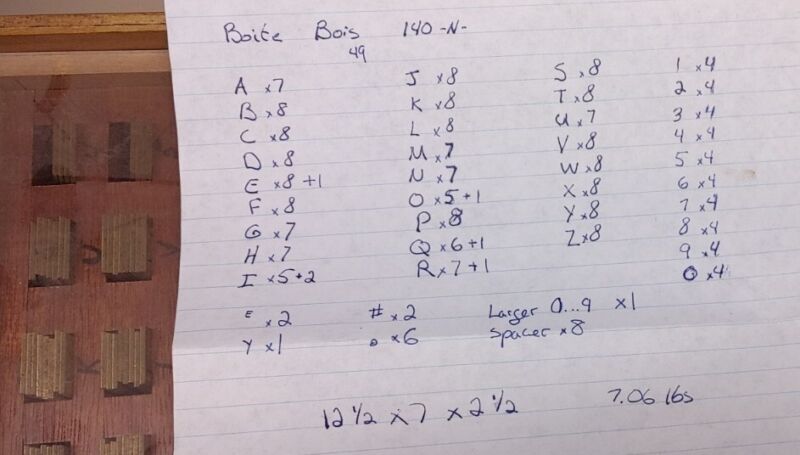 Boite Bois 140 -N-
49
A x7 J x8 S x8 1 x4
B x8 K x8 T x8 2 x4
C x8 L x8 U x7 3 x4
D x8 M x7 V x8 4 x4
E x8 +1 N x7 W x8 5 x4
F x8 O x5 +1 X x8 6 x4
G x7 P x8 Y x8 7 x4
H x7 Q x6 +1 Z x8 8 x4
I x5 +2 R x7 +1 9 x4
0 x4
E x2 # x2 Larger 0...9 x1
Y x1 o x6 Spacer x8
12 1/2 x 7 x 2 1/2 7.06 lbs